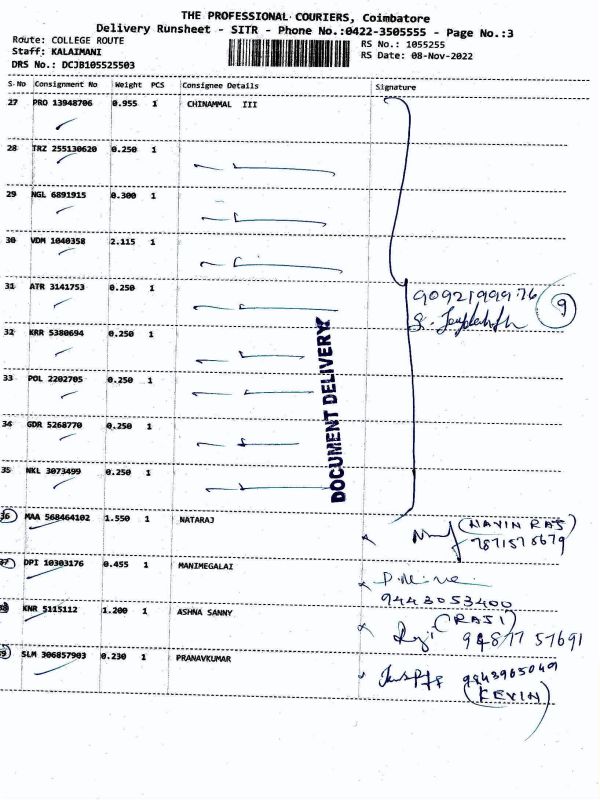 THE PROFESSIONAL COURIERS, Coimbatore
Delivery Runsheet - SITR - Phone No.:0422-3505555 - Page No.:3
Route: COLLEGE ROUTE
Staff: KALAIMANI
DRS No.: DCJB105525503
RS No.: 1055255
RS Date: 08-Nov-2022
S.No Consignment No Weight PCS Consignee Details Signature
27 PRO 13948706 0.955 1 CHINAMMAL III
28 TRZ 255130620 0.250 1
29 NGL 6891915 0.300 1
30 VDM 1040358 2.115 1
31 ATR 3141753 0.250 1
9092199976 9
32 KRR 5380694 0.250 1
33 POL 2202705 0.250 1
34 GDR 5268770 0.250 1
35 NKL 3073499 0.250 1
DOCUMENT DELIVERY
36 MAA 568464102 1.550 1 NATARAJ
(NAVIN RAJ)
7871578679
37 DPI 10303176 0.455 1 MANIMEGALAI
9443053400
38 KNR 5115112 1.200 1 ASHNA SANNY
(RAJI)
94877 57691
39 SLM 306857903 0.230 1 PRANAVKUMAR
9943905049
(KEVIN)